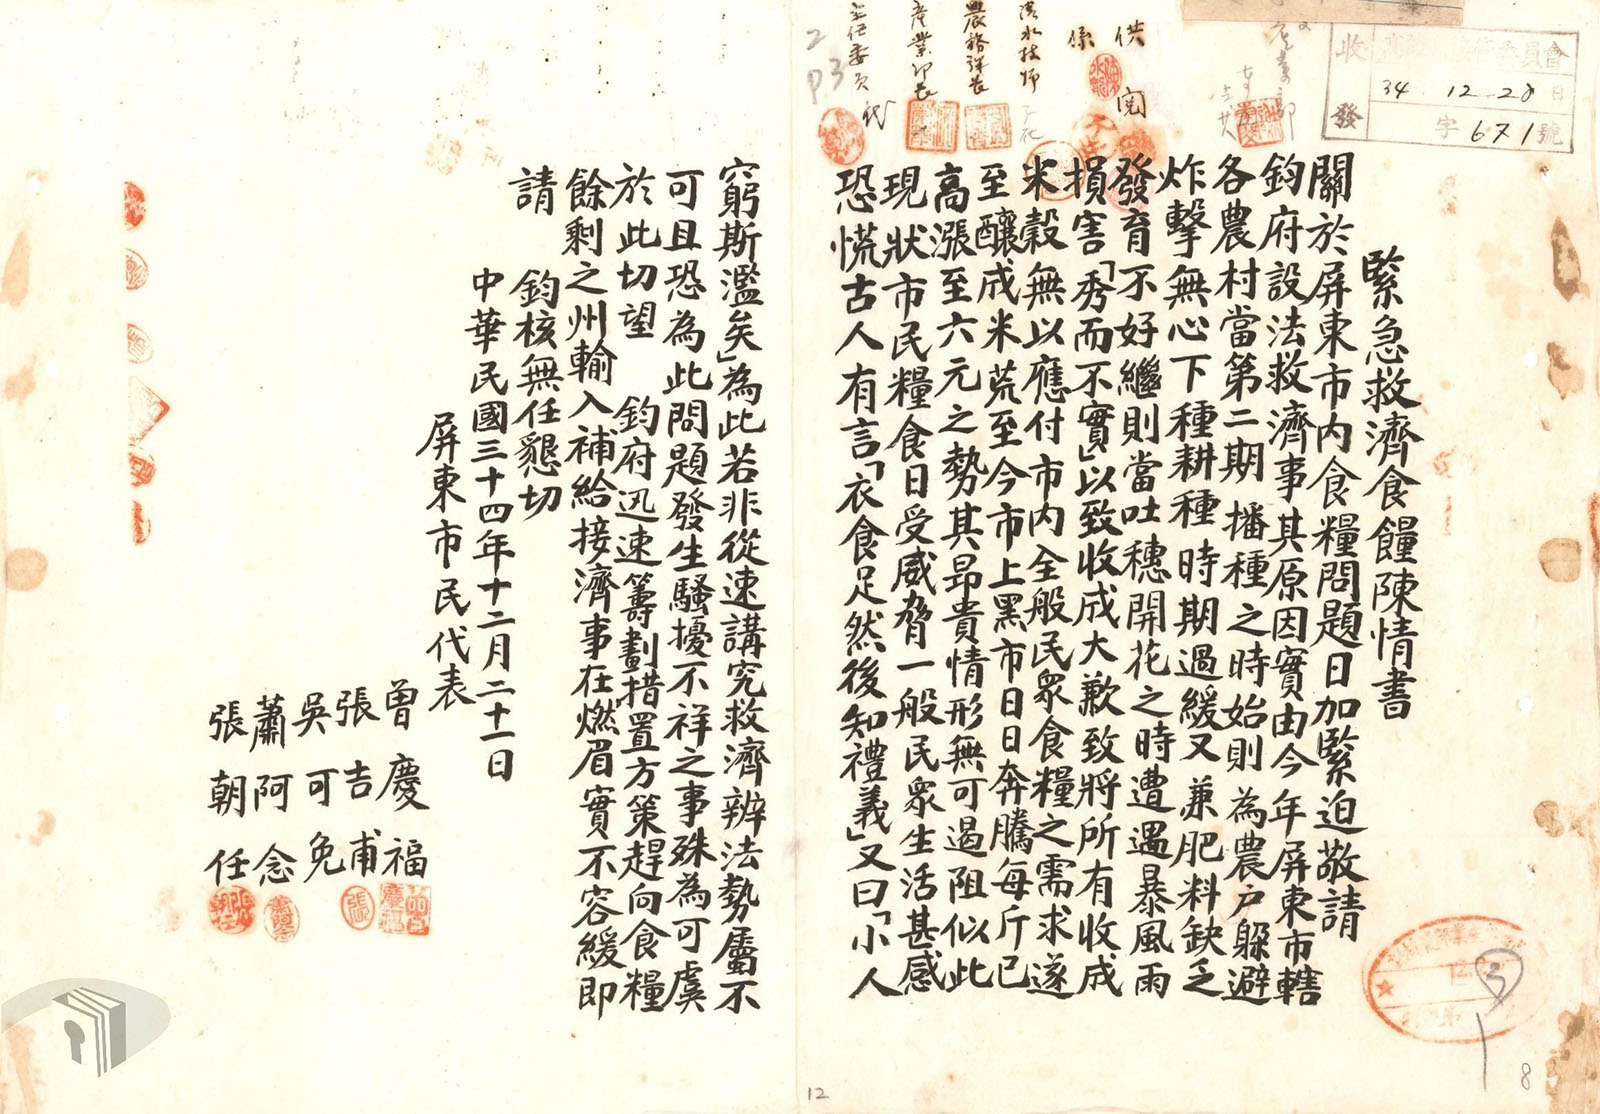 緊急救濟食糧陳情書
關於屏東市內食糧問題日加緊迫敬請
鈞府設法救濟事其原因實由今年屏東市轄
各農村當第二期播種之時始則為農戶躲避
炸擊無心下種耕種時期過緩又兼肥料缺乏
發育不好繼則當吐穗開花之時遭遇暴風雨
損害「秀而不實」以致收成大歉致將所有收成
米穀無以應付市內全般民眾食糧之需求遂
至釀成米荒至今市上黑市日日奔騰每斤已
高漲至六元之勢其昂貴情形無可遏阻似此
現狀市民糧食日受威脅一般民眾生活甚感
恐慌古人有言「衣食足然後知禮義」又曰「小人
窮斯濫矣」為此若非從速講究救濟辦法勢屬不
可且恐為此問題發生騷擾不祥之事殊為可虞
於此切望　鈞府迅速籌劃措置方策趕向食糧
餘剩之州輸入補給接濟事在燃眉實不容緩即
請　鈞核無任懇切
中華民國三十四年十二月二十一日
屏東市民代表
曾慶福
張吉甫
吳可免
蕭阿念
張朝任
收發
34 12 28日
字671號
供
係
閱
農務課長
主任委員
代
2
P3
3
8
12